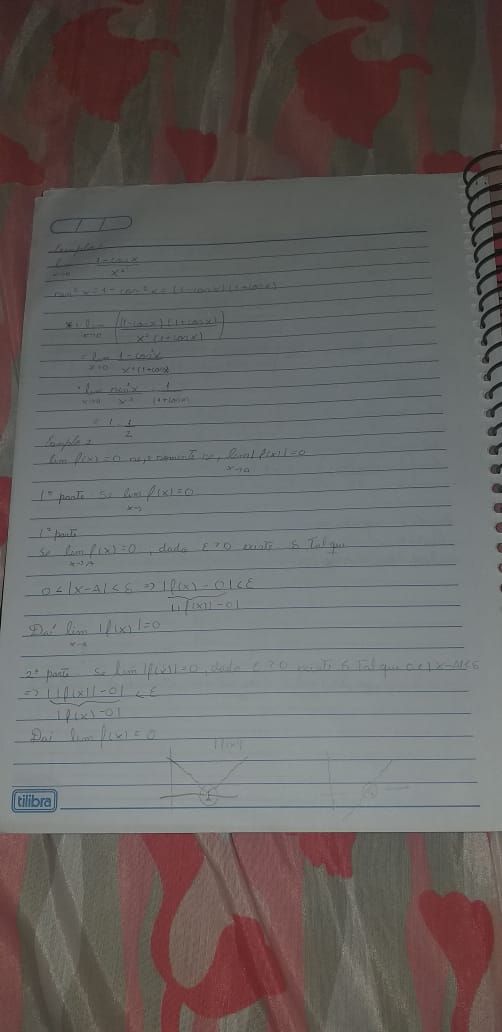 Exemplo 1
lim 1-cosx
x→0 x²
sen²x=1-cos²x=(1-cosx)(1+cosx)
*= lim ((1-cosx)(1+cosx))
x→0 x²(1+cosx)
=lim 1-cos²x
x→0 x²(1+cosx)
=lim sen²x 1
x→0 x² (1+cosx)
=1. 1
2
Exemplo 2
lim f(x)=0 se, e somente se, lim |f(x)|=0
x→A
1ª parte Se lim f(x)=0
1ª parte
Se lim f(x)=0, dado ε>0 existe δ Tal que
x→A
0<|x-A|<δ ⇒ |f(x)-0|<ε
||f(x)|-0|
Daí lim |f(x)|=0
2ª parte Se lim |f(x)|=0, dado ε>0 existe δ Tal que 0<|x-A|<δ
⇒ ||f(x)|-0|<ε
|f(x)-0|
Daí lim f(x)=0
|f(x)|
tilibra